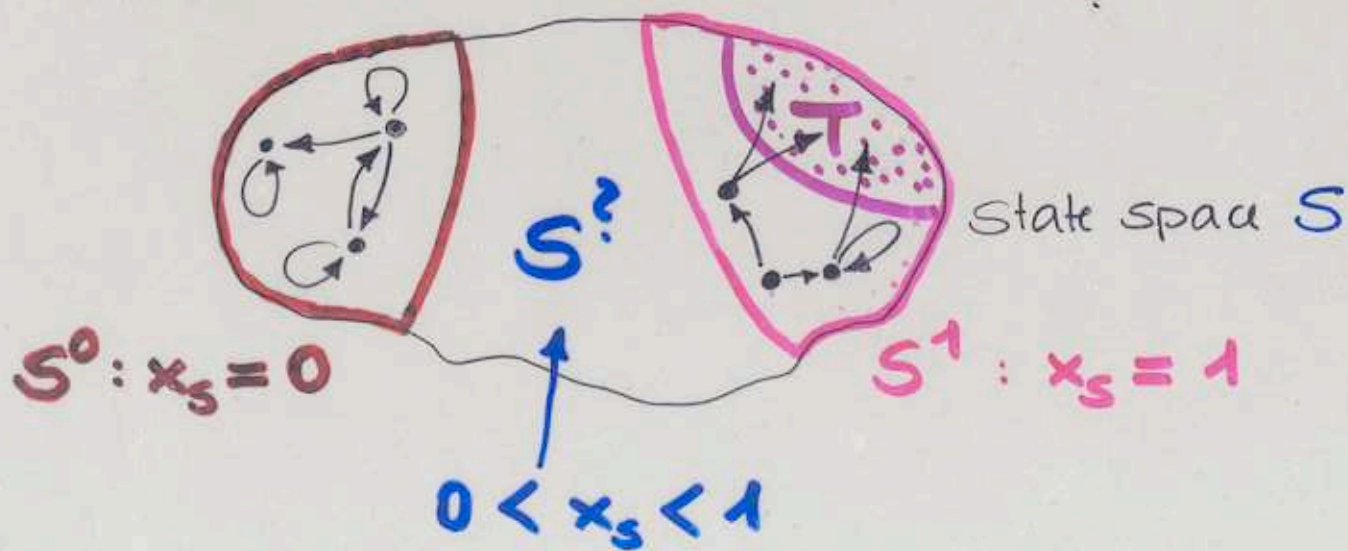 T
S?
state space S
S⁰: xₛ = 0
S¹ : xₛ = 1
0 < xₛ < 1